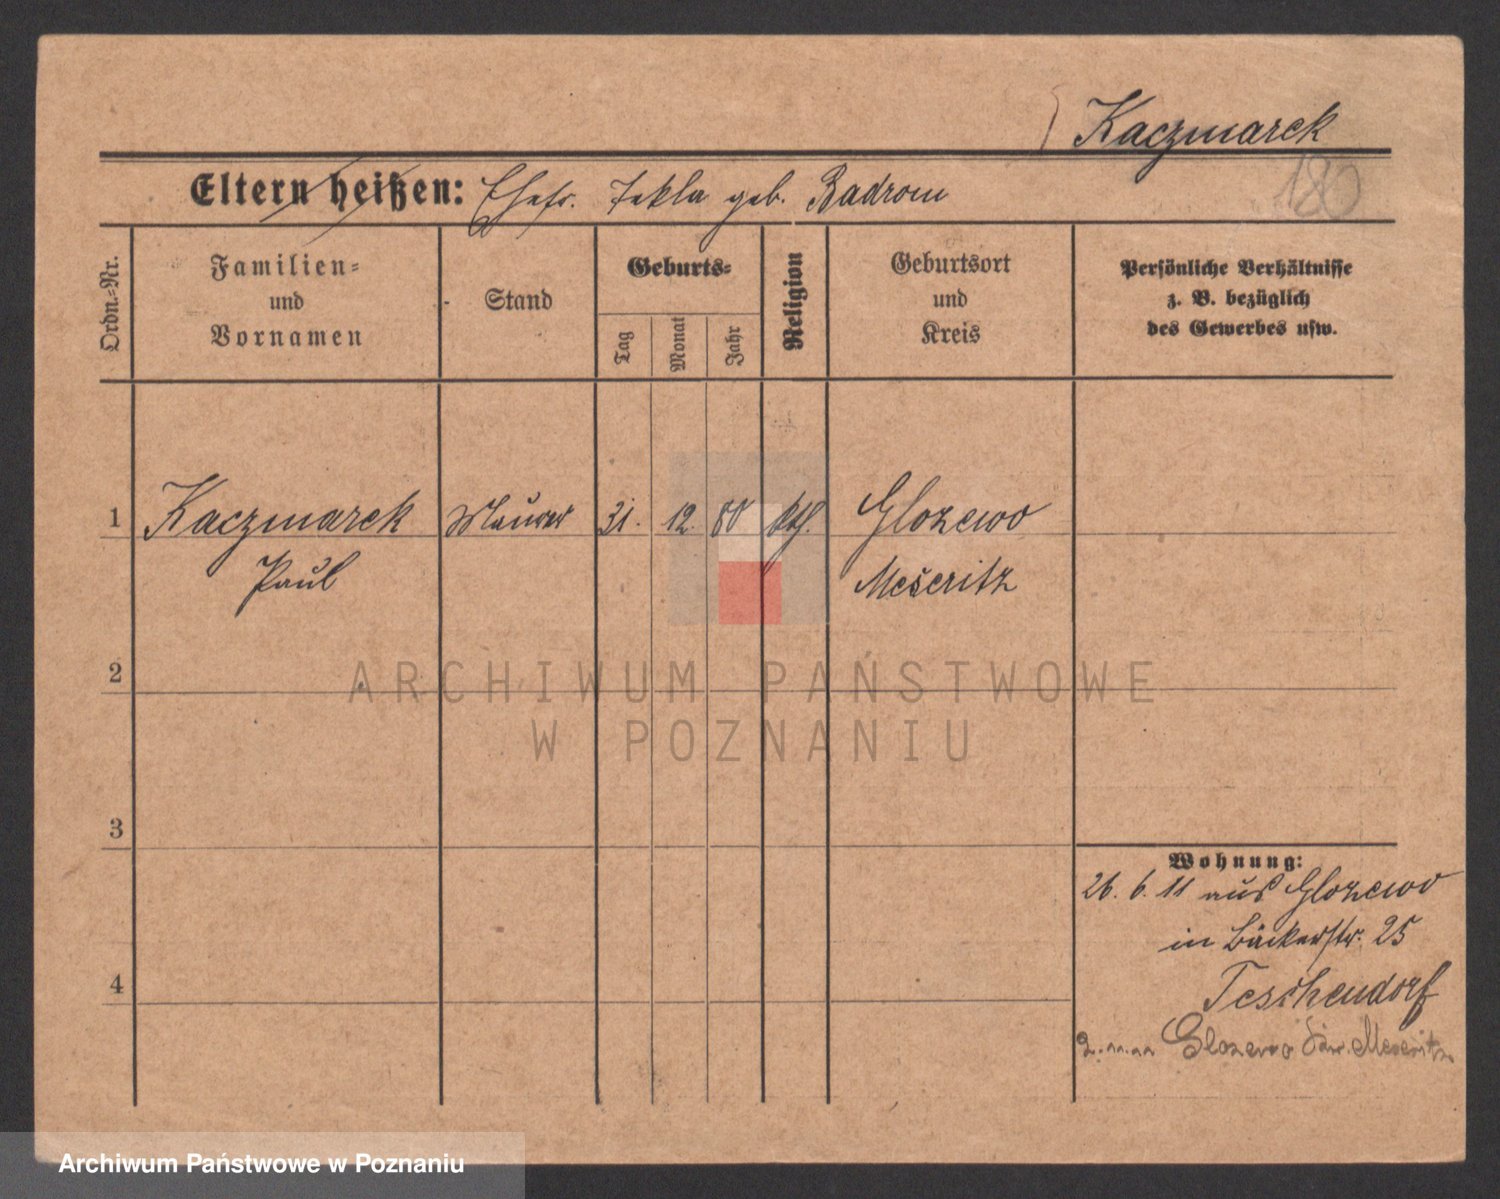 Kaczmarek
180
Eltern heißen: Ehefr. Tekla geb. Badrow
Ordn.-Nr.
Familien-
und
Vornamen
Stand
Geburts-
Tag
Monat
Jahr
Religion
Geburtsort
und
Kreis
Persönliche Verhältnisse
z. B. bezüglich
des Gewerbes usw.
1 Kaczmarek Maurer 31. 12. 80 kth. Glozewo
Paul Meseritz
2
ARCHIWUM PAŃSTWOWE
W POZNANIU
3
Wohnung:
26. 6. 11 aus Glozewo
in Bäckerstr. 25
4
Teschendorf
2. 11. 11 Glozewo Meseritz
Archiwum Państwowe w Poznaniu